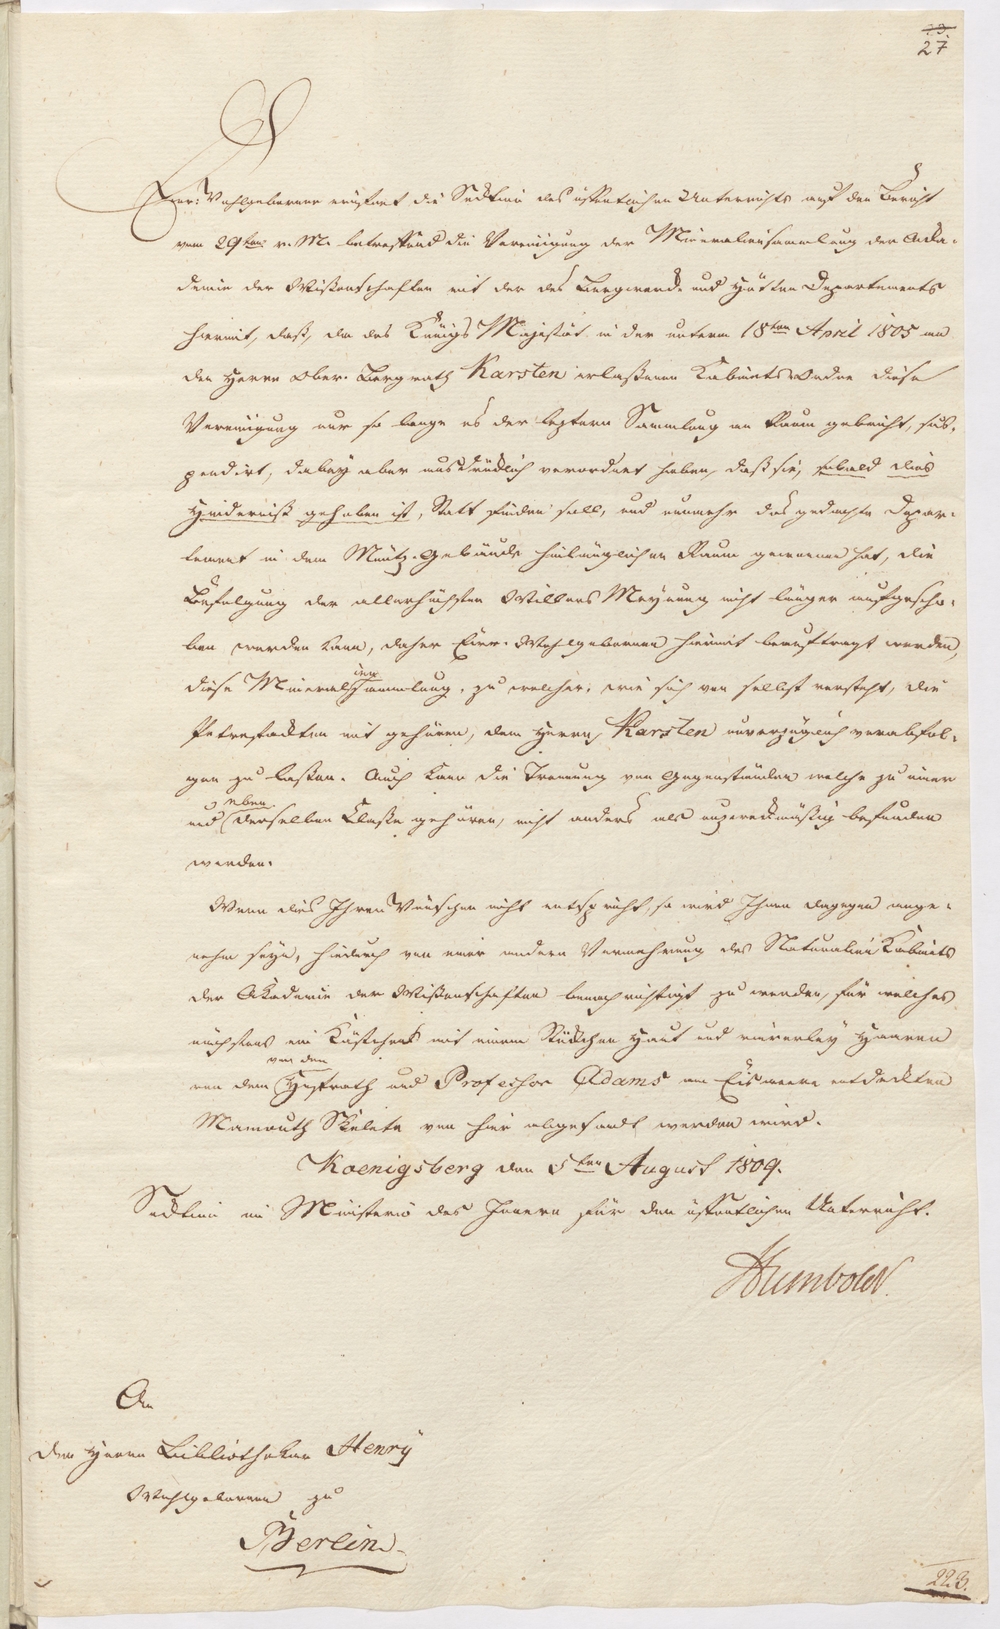 23.
27
Ewr: Wohlgeboren eröfnet die Sektion des öffentlichen Unterrichts auf den Bericht
vom 29ten v. M. betreffend die Vereinigung der Mineraliensammlung der Aka-
demie der Wißenschaften mit der des Bergwerks und Hütten Departements
hiermit, daß, da des Königs Majestät in der unterm 18ten April 1805 an
den Herrn Ober-Bergrath Karsten erlaßenen Kabinets-Ordre diese
Vereinigung nur so lange es der leztern Sammlung an Raum gebricht, sus-
pendirt, dabey aber ausdrücklich verordnet haben, daß sie, sobald dies
Hinderniß gehoben ist, Statt finden soll, und nunmehr das gedachte Depar-
tement in dem Müntz-Gebäude hinlänglichen Raum gewonnen hat, die
Befolgung der allerhöchsten Willens Meynung nicht länger aufgescho-
ben werden kann, daher Eure Wohlgeboren hiermit beauftragt werden,
diese Mineraliensammlung, zu welcher, wie sich von selbst versteht, die
Petrefackten mit gehören, dem Herrn Karsten unverzüglich verabfol-
gen zu laßen. Auch kann die Trennung von Gegenständen welche zu einer
und eben derselben Claße gehören, nicht anders als unzweckmäßig befunden
werden.
Wenn dies Ihren Wünschen nicht entspricht, so wird Ihnen dagegen ange-
nehm seyn, hiedurch von einer andern Vermehrung des Naturalien Kabinets
der Akademie der Wißenschaften benachrichtigt zu werden, für welches
nächstens ein Kästchen mit einem Stückchen Haut und einerley Haaren
von dem von dem Hofrath und Professor Adams am Eismeere entdeckten
Mamouth Skelete von hier abgesandt werden wird.
Koenigsberg den 5ten August 1809.
Sektion im Ministerio des Innern für den öffentlichen Unterricht.
Humboldt.
An
den Herrn Bibliothekar Henry
Wohlgeboren zu
Berlin
223.